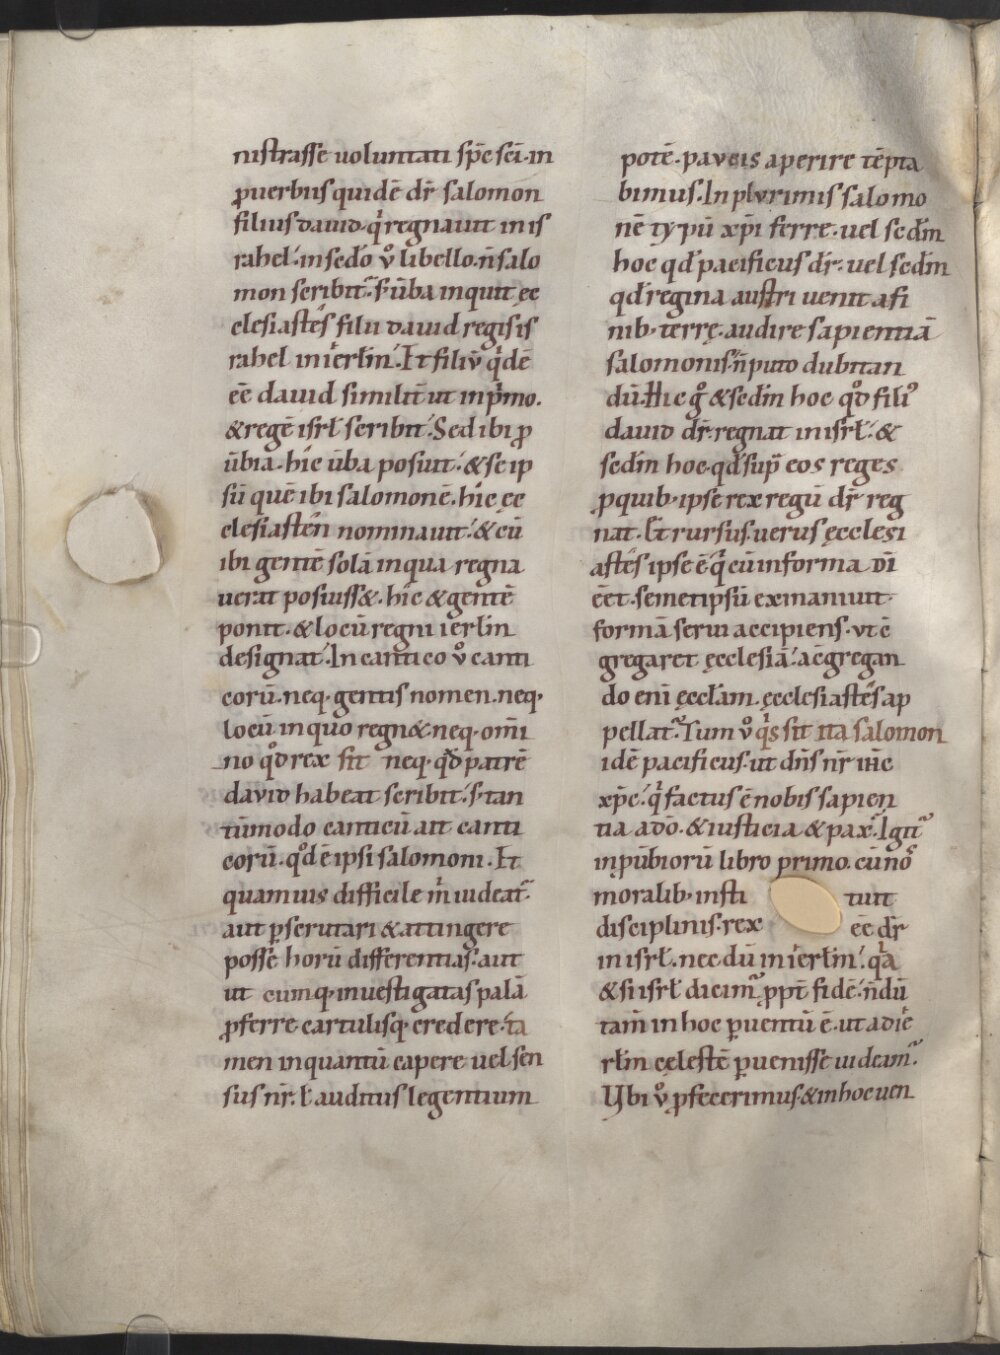 nistrasse uoluntati sp̄c sc̄i. in
ꝓuerbiis quidē dr̄ salomon
filius dauid. qͥ regnauit in is
rahel. in sc̄do ů libello. n̄ salo
mon scribit᷑. s; ūba inquit ęc
clesiastēs filii dauid regis is
rahel in ierl̄m. Et filiū qͥdē
eē dauid similit̄ ut in pͥmo.
& regē isrł scribit. Sed ibi ꝓ
ūbia. hic ūba posuit. & se ip
sū quē ibi salomonē. hic ęc
clesiastēn nominauit. & cū
ibi gentē solā in qua regna
uerat posuiss&. hic & gentē
ponit. & locū regni ierl̄m
designat. In cantico ů canti
corū. neq; gentis nomen. neq;
locū in quo regn&. neq; om̄i
no qͦd rex sit neq; qd̄ patrē
david habeat scribit. s; tan
tūmodo canticū ait canti
corū. qͦd ē ipsi salomoni. Et
quamuis difficile m̄ uideat᷑.
aut ꝑscrutari & attingere
posse horū differentias. aut
ut cumq; inuestigatas palā
ꝓferre cartulisq; credere. ta
men inquantū capere uel sen
sus nr̄. ł auditus legentium
potē. paucis aperire tēpta
bimus. In plurimis salomo
nē typū xp̄i ferre. uel sc̄dm
hoc qd̄ pacificus dr̄. uel sc̄dm
qd̄ regina austri uenit a fi
nib; terrę. audire sapientiā
salomonis. n̄ puto dubitan
dū. Hic gͦ & sc̄dm hoc qͦd filiꝰ
dauid dr̄. regnat in isrł. &
sc̄dm hoc. qd̄ suꝑ eos reges
ꝓ quib; ipse rex regū dr̄ reg
nat. Et rursus. uerus ęcclesi
astēs ipse ē qͥ cū in forma dī
eēt. semetip̄sū exinaniuit.
formā serui accipiens. ut ē
gregaret ęcclesiā. a cgregan
do eni ęccl̄am. ęcclesiastēs ap
pellat᷑. Tum ů qͥs sit ita salomon
idē pacificus. ut dn̄s nr̄ ih̄c
xp̄c. qͥ factus ē nobis sapien
tia a dō. & iusticia & pax. Igit᷑
in ꝓūbiorū libro primo. cū noˢ
moralib; insti tuit
disciplinis. rex eē dr̄
in isrł. nec dū in ierl̄m. qͥa
& si isrł dicim᷑ ꝓpt̄ fidē. n̄dū
tam̄ in hoc ꝑuentū ē. ut ad ie
rl̄m cęlestē ꝑuenisse uideam᷑.
Ubi ů ꝓfecerimus. & in hoc uen